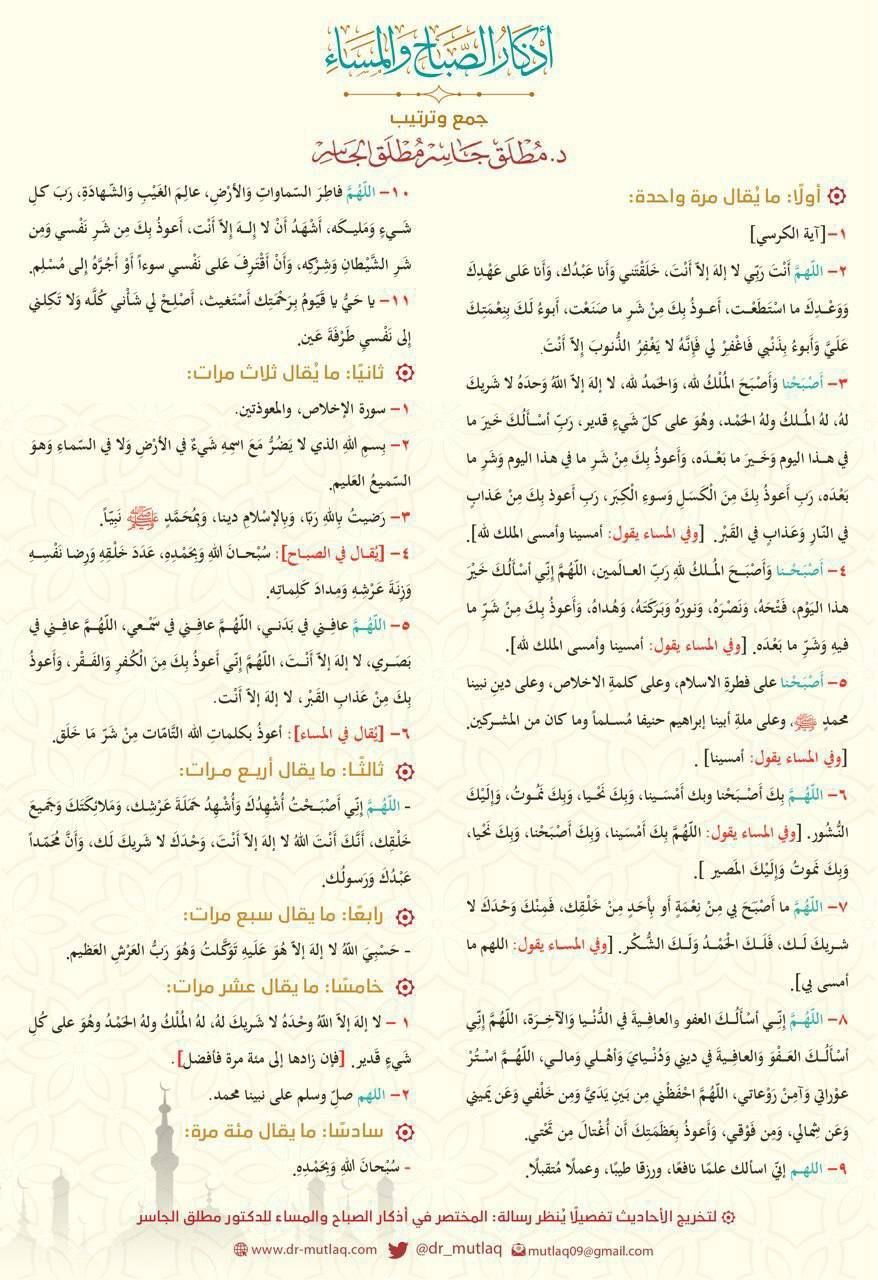 أذكار الصباح والمساء
جمع وترتيب
د. مُطْلَق جَاسِر مُطْلَق الجَاسِر
أولًا: ما يُقال مرة واحدة:
١- [آية الكرسي]
٢- اللّهمَّ أَنْتَ رَبِّي لا إلهَ إلاّ أَنْتَ، خَلَقْتَني وَأنا عَبْدُك، وَأنا عَلى عَهْدِكَ
وَوَعْدِكَ ما اسْتَطَعْت، أَعوذُ بِكَ مِنْ شَرِ ما صَنَعْت، أَبوءُ لَكَ بِنِعْمَتِكَ
عَلَيَّ وَأَبوءُ بِذَنْبي فَاغْفِرْ لي فَإِنَّهُ لا يَغْفِرُ الذُّنوبَ إِلاّ أَنْتَ.
٣- أَصْبَحْنا وَأَصْبَحَ المُلْكُ لله، وَالحَمدُ لله، لا إلهَ إلاّ اللّهُ وَحدَهُ لا شَريكَ
لهُ، لهُ المُلكُ ولهُ الحَمْد، وهُوَ على كلّ شَيءٍ قدير، رَبِّ أسْألُكَ خَيرَ ما
في هذا اليوم وَخَيرَ ما بَعْدَه، وَأَعوذُ بِكَ مِنْ شَرِ ما في هذا اليوم وَشَرِ ما
بَعْدَه، رَبِ أَعوذُ بِكَ مِنَ الْكَسَلِ وَسوءِ الْكِبَر، رَبِ أَعوذ بِكَ مِنْ عَذابٍ
في النّارِ وَعَذابٍ في القَبْر. [وفي المساء يقول: أمسينا وأمسى الملك لله].
٤- أَصْبَحْنا وَأَصْبَحَ المُلكُ للهِ رَبِّ العالَمين، اللّهُمَّ إِنِّي أسْألُكَ خَيْرَ
هذا اليَوْم، فَتْحَهُ، وَنَصْرَهُ، وَنورَهُ وَبَرَكَتَهُ، وَهُداهُ، وَأَعوذُ بِكَ مِنْ شَرِّ ما
فيهِ وَشَرِّ ما بَعْدَه. [وفي المساء يقول: أمسينا وأمسى الملك لله].
٥- أَصْبَحْنا على فطرةِ الاسلام، وعلى كلمةِ الاخلاص، وعلى دينِ نبينا
محمدٍ ﷺ، وعلى ملةِ أبينا إبراهيم حنيفا مُسلماً وما كان من المشركين.
[وفي المساء يقول: أمسينا] .
٦- اللّهُمَّ بِكَ أَصْبَحْنا وبك أمْسَينا، وَبِكَ نَحْيا، وَبِكَ نَمُوتُ، وَإِلَيْكَ
النُّشُور. [وفي المساء يقول: اللّهُمَّ بِكَ أَمْسَينا، وَبِكَ أَصْبَحْنا، وَبِكَ نَحْيا،
وَبِكَ نَموتُ وَإِلَيْكَ المَصير ].
٧- اللّهُمَّ ما أَصْبَحَ بي مِنْ نِعْمَةٍ أَو بِأَحَدٍ مِنْ خَلْقِك، فَمِنْكَ وَحْدَكَ لا
شريكَ لَك، فَلَكَ الْحَمْدُ وَلَكَ الشُّكْر. [وفي المساء يقول: اللهم ما
أمسى بي].
٨- اللّهُمَّ إِنّي أسْألُكَ العفو والعافِيةَ في الدُّنْيا وَالآخِرَة، اللّهُمَّ إِنِّي
أسْألُكَ العَفْوَ وَالعافِيةَ في ديني وَدُنْيايَ وَأهْلي وَمالي، اللّهُمَّ اسْتُرْ
عوْراتي وَآمِنْ رَوْعاتي، اللّهُمَّ احْفَظْني مِن بَينِ يَدَيَّ وَمِن خَلْفي وَعَن يَميني
وَعَن شِمالي، وَمِن فَوْقي، وَأَعوذُ بِعَظَمَتِكَ أَن أُغْتالَ مِن تَحْتي.
٩- اللهم إنّي اسألك علمًا نافعًا، ورزقا طيبًا، وعملًا مُتقبلًا.
١٠- اللّهُمَّ فاطِرَ السّماواتِ وَالأرْضِ، عالِمَ الغَيْبِ وَالشّهادَةِ، رَبَ كلِ
شَيءٍ وَمَليكَه، أَشْهَدُ أَنْ لا إِلهَ إِلاّ أَنْت، أَعوذُ بِكَ مِن شَرِ نَفْسي وَمِن
شَرِ الشَّيْطانِ وَشِرْكِه، وَأَنْ أَقْتَرِفَ عَلى نَفْسي سوءاً أَوْ أَجُرَّهُ إِلى مُسْلِم.
١١- يا حَيُّ يا قَيّومُ بِرَحْمَتِكَ أَسْتَغيث، أَصْلِحْ لي شَأْني كُلَّه وَلا تَكِلني
إِلى نَفْسي طَرْفَةَ عَين.
ثانيًا: ما يُقال ثلاث مرات:
١- سورة الإخلاص، والمعوذتين.
٢- بِسمِ اللهِ الذي لا يَضُرُّ مَعَ اسمِهِ شَيءٌ في الأرْضِ وَلا في السّماءِ وَهوَ
السّميعُ العَليم.
٣- رَضيتُ بِاللهِ رَبّا، وَبِالإسْلامِ دينا، وَبِمُحَمَّدٍ ﷺ نَبِيّاً.
٤- [يُقال في الصباح]: سُبْحانَ اللهِ وَبِحَمْدِهِ، عَدَدَ خَلْقِهِ وَرِضا نَفْسِهِ
وَزِنَةَ عَرْشِهِ وَمِدادَ كَلِماتِه.
٥- اللّهُمَّ عافِني في بَدَني، اللّهُمَّ عافِني في سَمْعي، اللّهُمَّ عافِني في
بَصَري، لا إلهَ إلاّ أَنْتَ، اللّهُمَّ إِنّي أَعوذُ بِكَ مِنَ الْكُفرِ وَالفَقْر، وَأَعوذُ
بِكَ مِنْ عَذابِ القَبْر، لا إلهَ إلاّ أَنْت.
٦- [يُقال في المساء]: أعوذُ بكلماتِ الله التَّامّات مِنْ شَرّ مَا خَلَق.
ثالثًا: ما يقال أربع مرات:
- اللّهُمَّ إِنِّي أَصْبَحْتُ أُشْهِدُكَ وَأُشْهِدُ حَمَلَةَ عَرْشِك، وَمَلائِكَتَكَ وَجَميعَ
خَلْقِك، أَنَّكَ أَنْتَ اللهُ لا إلهَ إلاّ أَنْتَ، وَحْدَكَ لا شَريكَ لَك، وَأَنَّ مُحَمّداً
عَبْدُكَ وَرَسولُك.
رابعًا: ما يقال سبع مرات:
- حَسْبِيَ اللهُ لا إلهَ إلاّ هُوَ عَلَيهِ تَوَكَّلتُ وَهُوَ رَبُّ العَرْشِ العَظيم.
خامسًا: ما يقال عشر مرات:
١ - لا إلهَ إلاّ اللهُ وحْدَهُ لا شَريكَ لهُ، لهُ المُلْكُ ولهُ الحَمْدُ وهُوَ على كُلِ
شَيءٍ قَدير. [فإن زادها إلى مئة مرة فأفضل].
٢- اللهم صلّ وسلم على نبينا محمد.
سادسًا: ما يقال مئة مرة:
- سُبْحانَ اللهِ وَبِحَمْدِهِ.
لتخريج الأحاديث تفصيلًا يُنظر رسالة: المختصر في أذكار الصباح والمساء للدكتور مطلق الجاسر
www.dr-mutlaq.com @dr_mutlaq mutlaq09@gmail.com